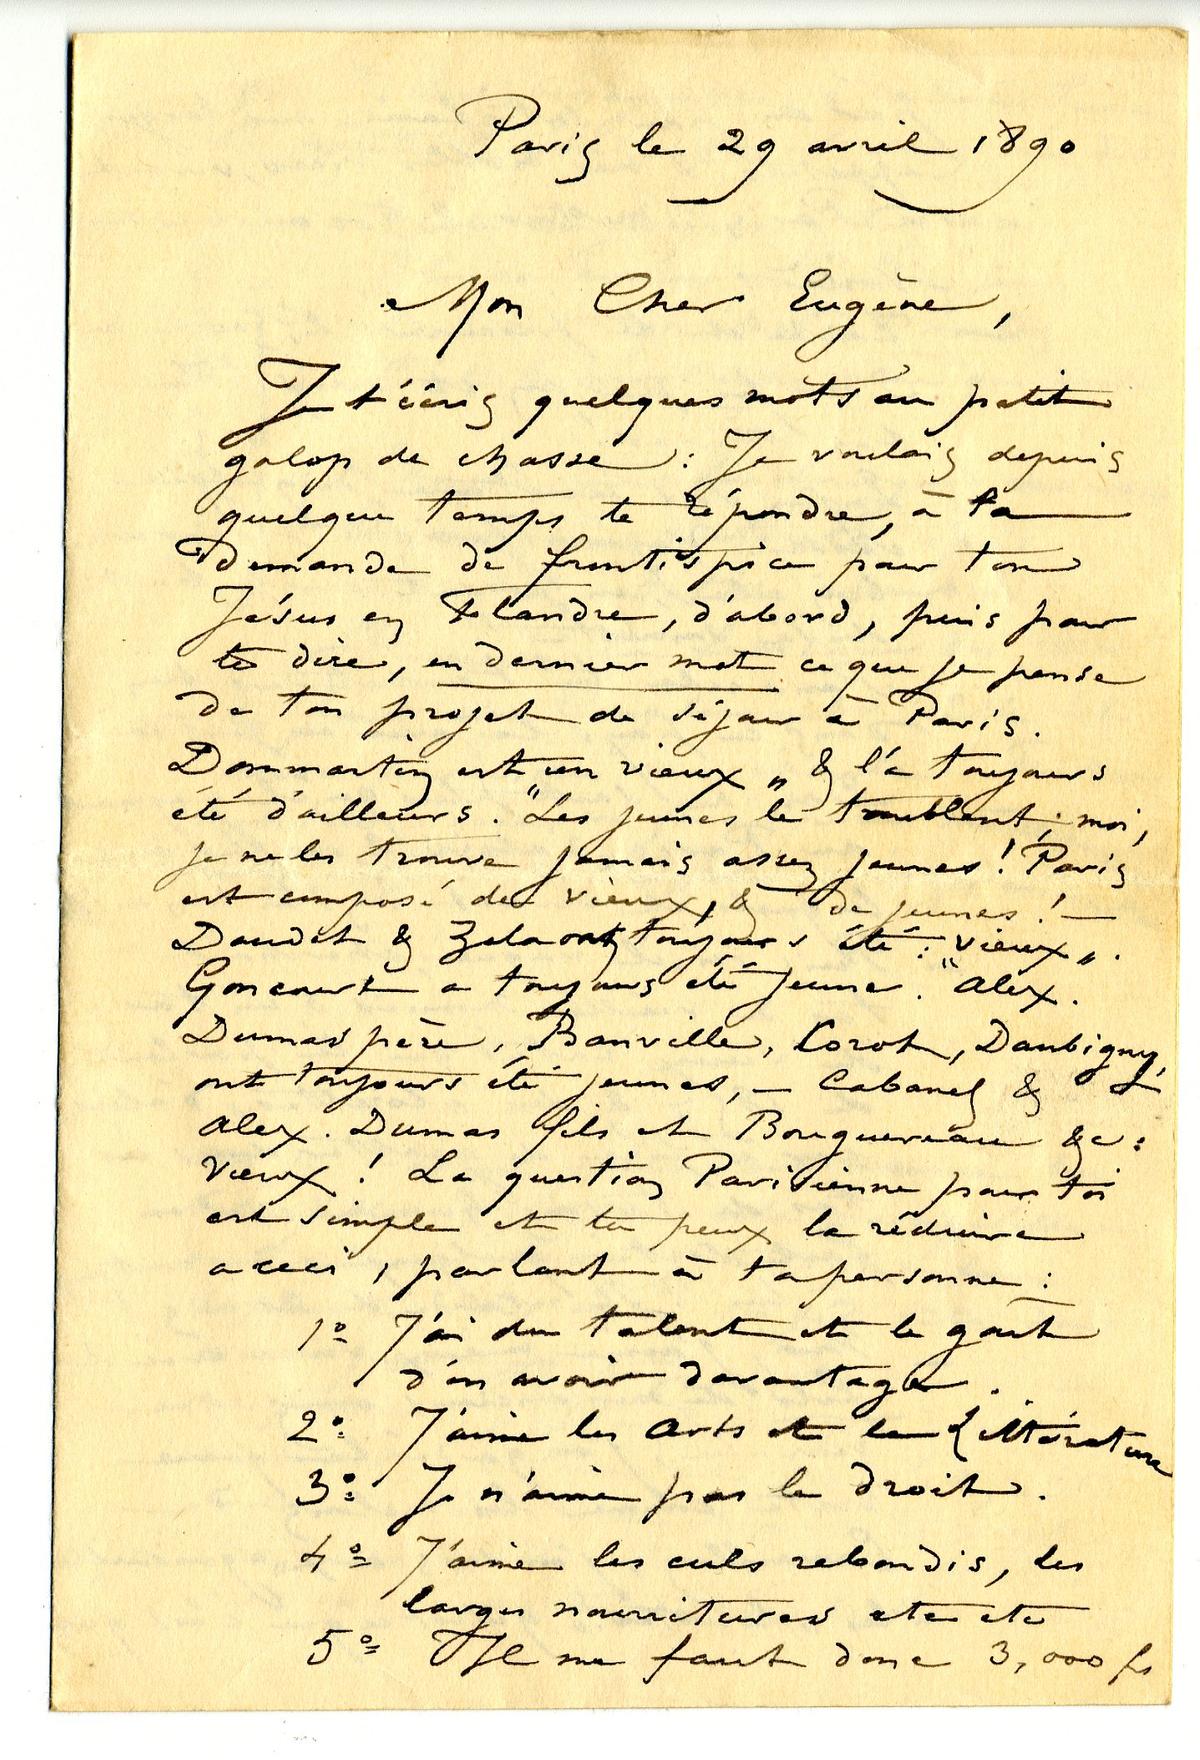 Paris le 29 avril 1890
Mon Cher Eugène,
Je t'écris quelques mots au petit
galop de chasse : Je voulais depuis
quelque temps te répondre, à ta
demande de frontispice pour ton
Jésus en Flandre, d'abord, puis pour
te dire, en dernier mot ce que je pense
de ton projet de séjour à Paris.
Dommartin est un vieux „ & l'a toujours
été d'ailleurs. "Les jeunes le troublent ; moi,
je ne les trouve jamais assez jeunes ! Paris
est composé de vieux, & de jeunes ! —
Daudet & Zola ont toujours été : vieux „ .
Goncourt a toujours été jeune. "Alex.
Dumas père, Banville, Corot, Daubigny,
ont toujours été jeunes, — Cabanel &
Alex. Dumas fils et Bouguereau &c :
vieux ! La question Parisienne pour toi
est simple et tu peux la réduire
a ceci , parlant à ta personne :
1º J'ai du talent et le goût
d'en avoir davantage .
2º J'aime les Arts et la Littérature
3º Je n'aime pas le droit .
4º J'aime les culs rebondis, les
larges nourritures etc etc
5º Il me faut donc 3,000 fs